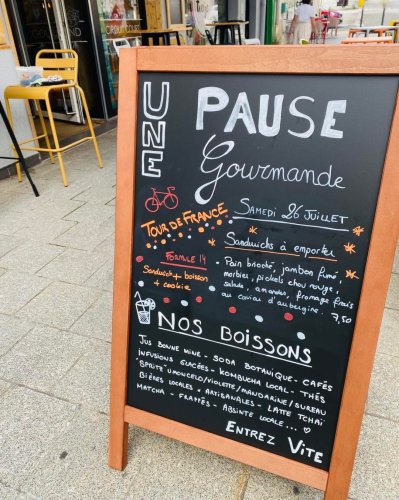 UNE PAUSE
Gourmande
SAMEDI 26 JUILLET
TOUR DE FRANCE
Sandwichs à emporter
• Pain brioché, jambon fumé,
morbier, pickels chou rouge,
salade, amandes, fromage frais
au caviar d'aubergine. 7,50
FORMULE 14
Sandwich + boisson
+ cookie
NOS BOISSONS
JUS BONNE MINE - SODA BOTANIQUE - CAFÉS
INFUSIONS GLACÉES - KOMBUCHA LOCAL - THÉS
"SPRITZ" LIMONCELO/VIOLETTE/MANDARINE/SUREAU
BIÈRES LOCALES + ARTISANALES - LATTE TCHAÏ
MATCHA - FRAPPÉS - ABSINTE LOCALE...
ENTREZ VITE